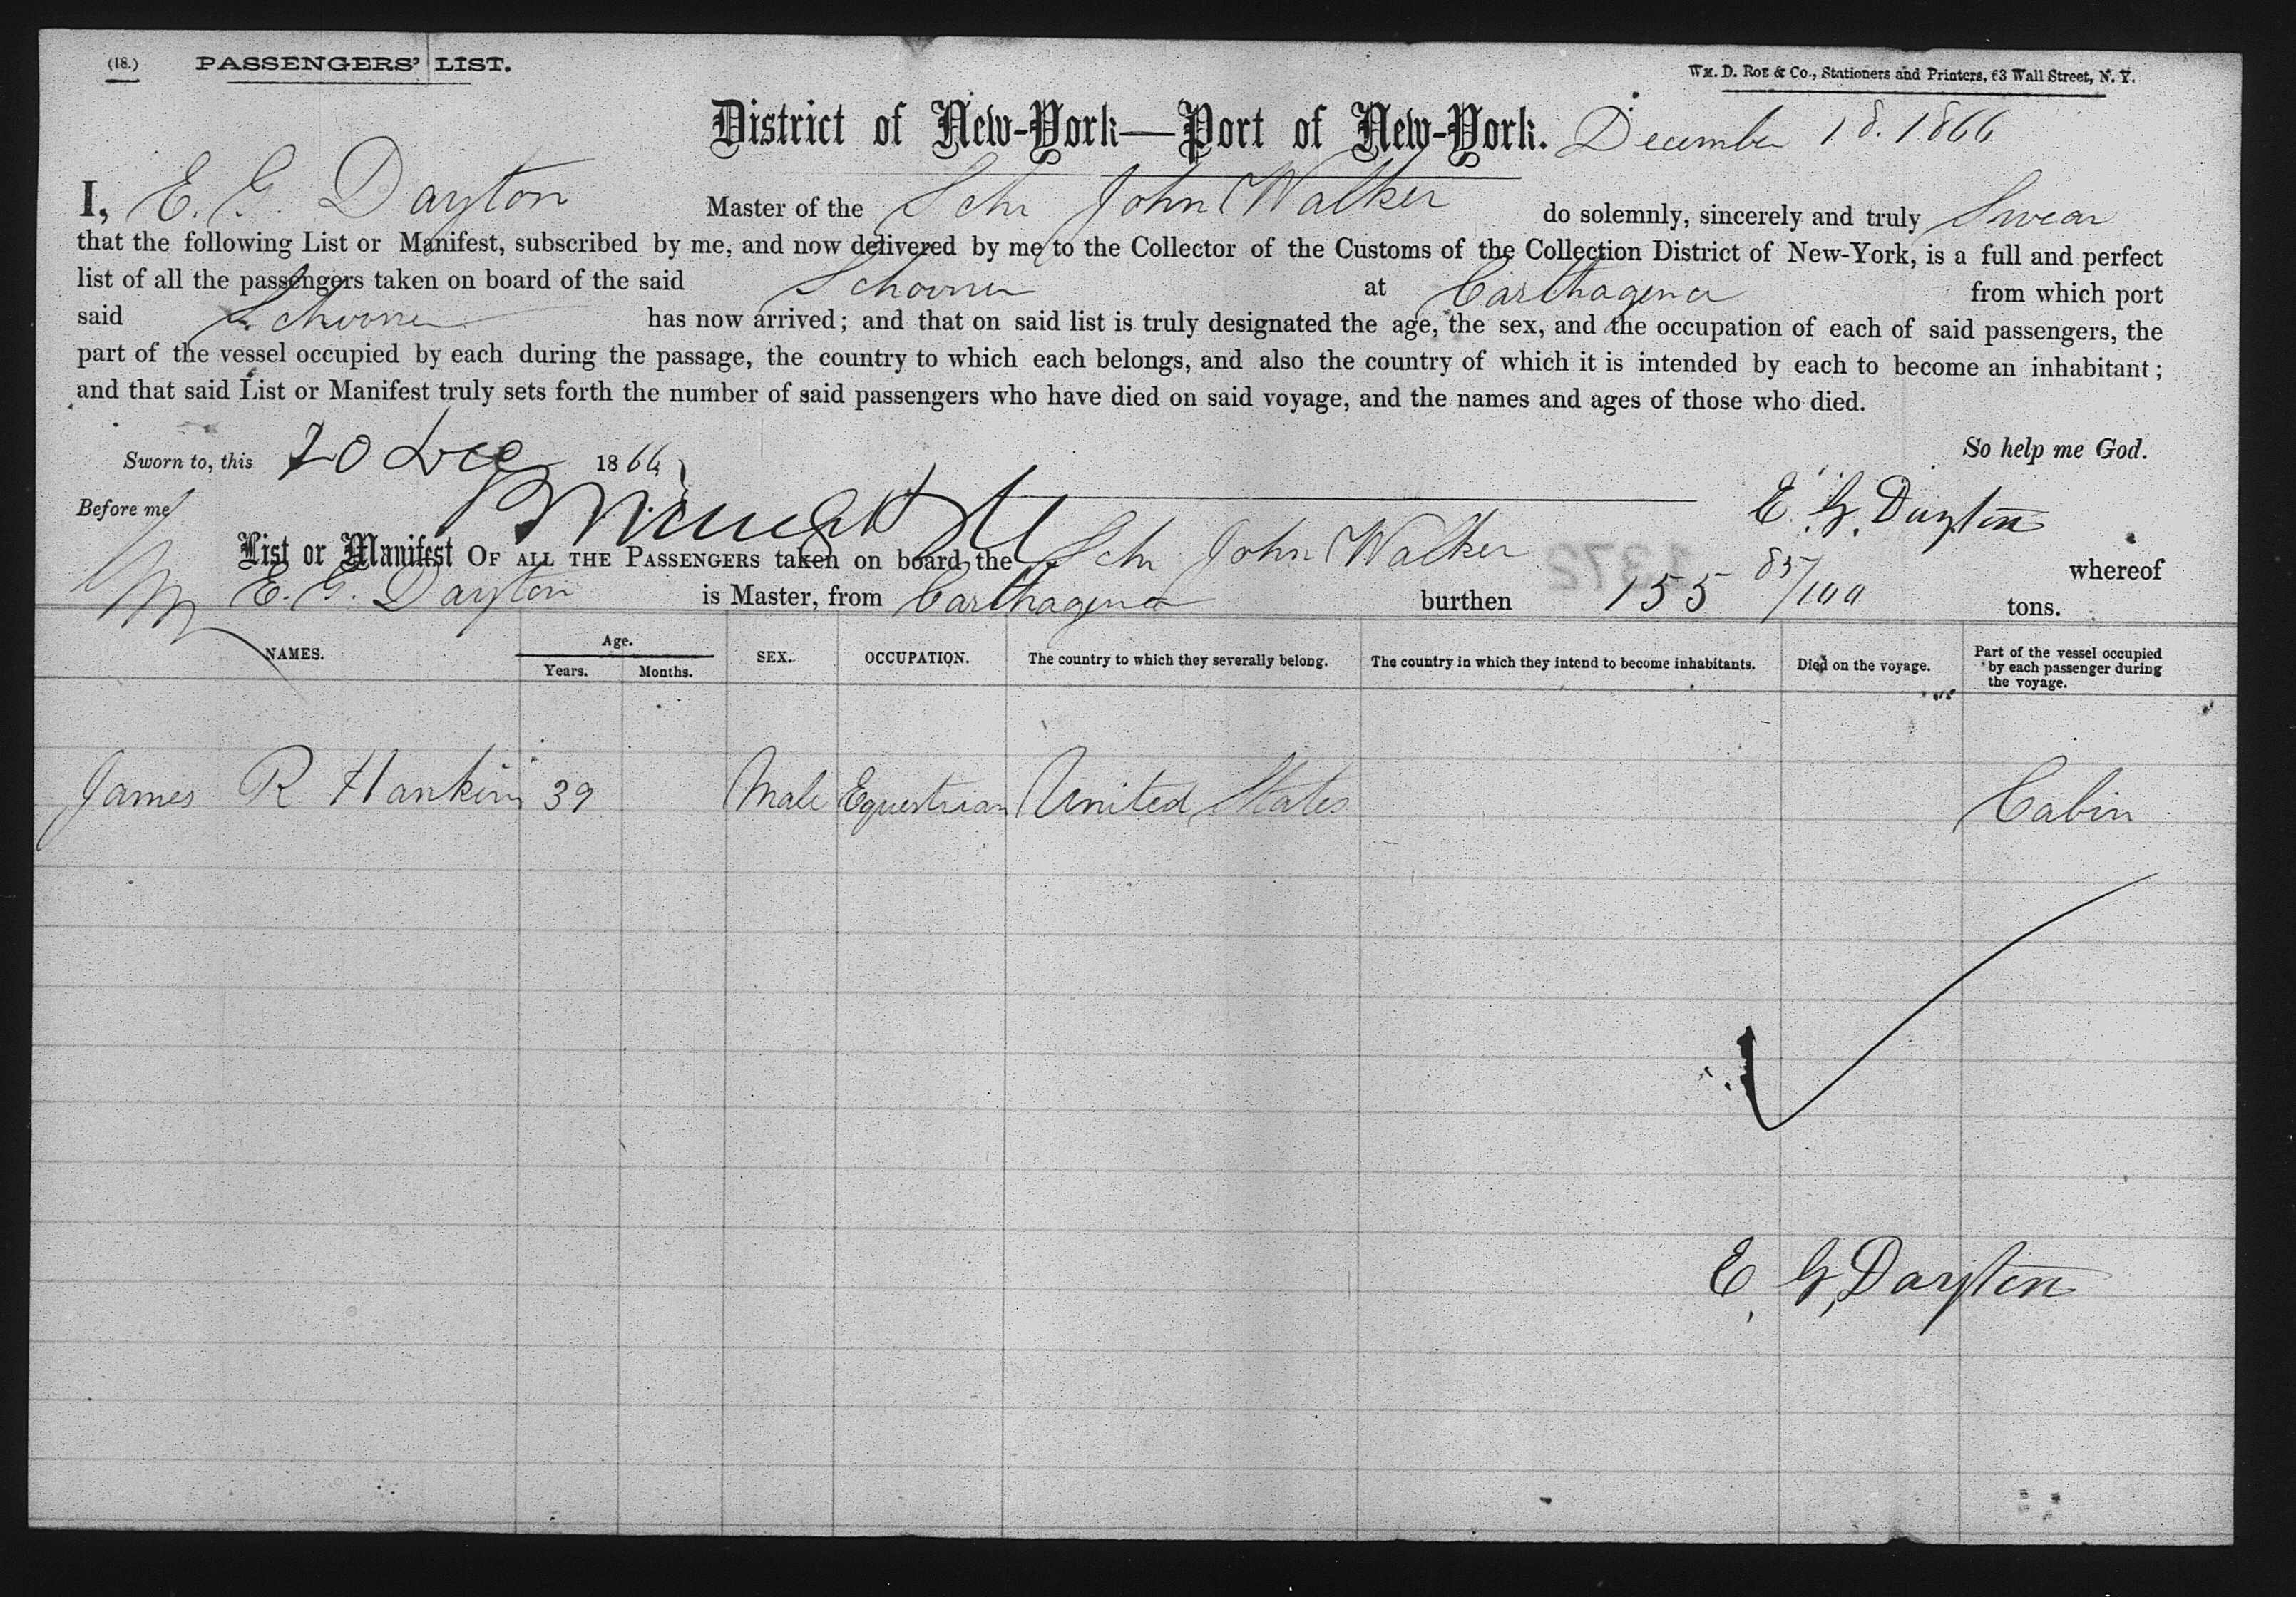 (18.) PASSENGERS' LIST.
WM. D. ROE & Co., Stationers and Printers, 63 Wall Street, N. Y.
District of New-York—Port of New-York. December 18. 1866
I, E. G. Dayton Master of the Schr John Walker do solemnly, sincerely and truly Swear
that the following List or Manifest, subscribed by me, and now delivered by me to the Collector of the Customs of the Collection District of New-York, is a full and perfect
list of all the passengers taken on board of the said Schooner at Carthagena from which port
said Schooner has now arrived; and that on said list is truly designated the age, the sex, and the occupation of each of said passengers, the
part of the vessel occupied by each during the passage, the country to which each belongs, and also the country of which it is intended by each to become an inhabitant;
and that said List or Manifest truly sets forth the number of said passengers who have died on said voyage, and the names and ages of those who died.
Sworn to, this 20 Dec 1866 So help me God.
Before me E. G. Dayton
List or Manifest OF ALL THE PASSENGERS taken on board the Schr John Walker whereof
E. G. Dayton is Master, from Carthagena burthen 155 85/100 tons.
1372
NAMES. Age. Years. Months. SEX. OCCUPATION. The country to which they severally belong. The country in which they intend to become inhabitants. Died on the voyage. Part of the vessel occupied by each passenger during the voyage.
James R Hankins 39 Male Equestrian United States Cabin
E. G. Dayton